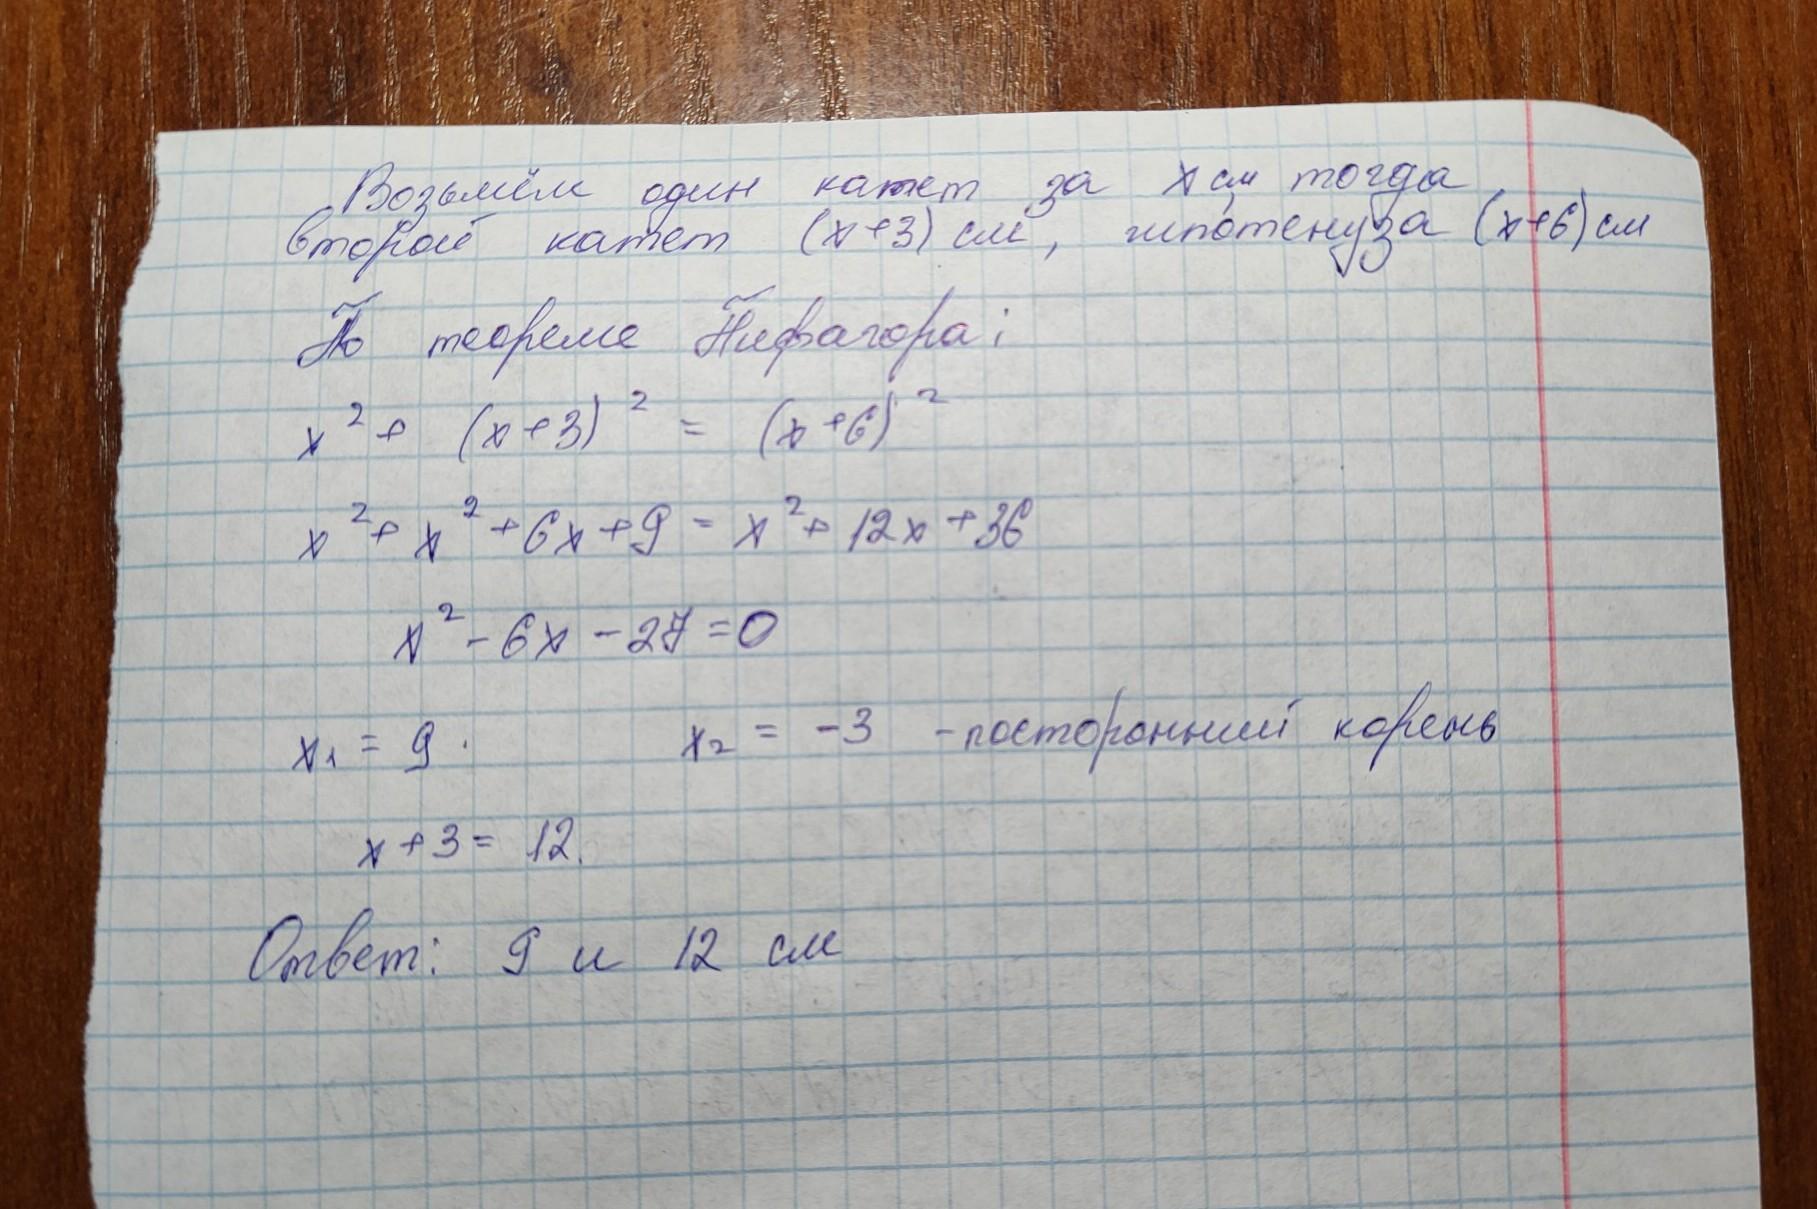 Возьмём один катет за x см тогда
второй катет (x+3) см, гипотенуза (x+6) см
По теореме Пифагора:
x² + (x+3)² = (x+6)²
x² + x² + 6x + 9 = x² + 12x + 36
x² - 6x - 27 = 0
x₁ = 9. x₂ = -3 - посторонний корень
x + 3 = 12.
Ответ: 9 и 12 см